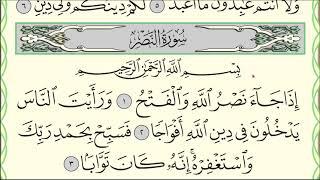 وَلَآ أَنتُمْ عَٰبِدُونَ مَآ أَعْبُدُ ٥ لَكُمْ دِينُكُمْ وَلِىَ دِينِ ٦
سُورَةُ النَّصْرِ
بِسْمِ ٱللَّهِ ٱلرَّحْمَٰنِ ٱلرَّحِيمِ
إِذَا جَآءَ نَصْرُ ٱللَّهِ وَٱلْفَتْحُ ١ وَرَأَيْتَ ٱلنَّاسَ
يَدْخُلُونَ فِى دِينِ ٱللَّهِ أَفْوَاجًا ٢ فَسَبِّحْ بِحَمْدِ رَبِّكَ
وَٱسْتَغْفِرْهُ إِنَّهُۥ كَانَ تَوَّابًۢا ٣